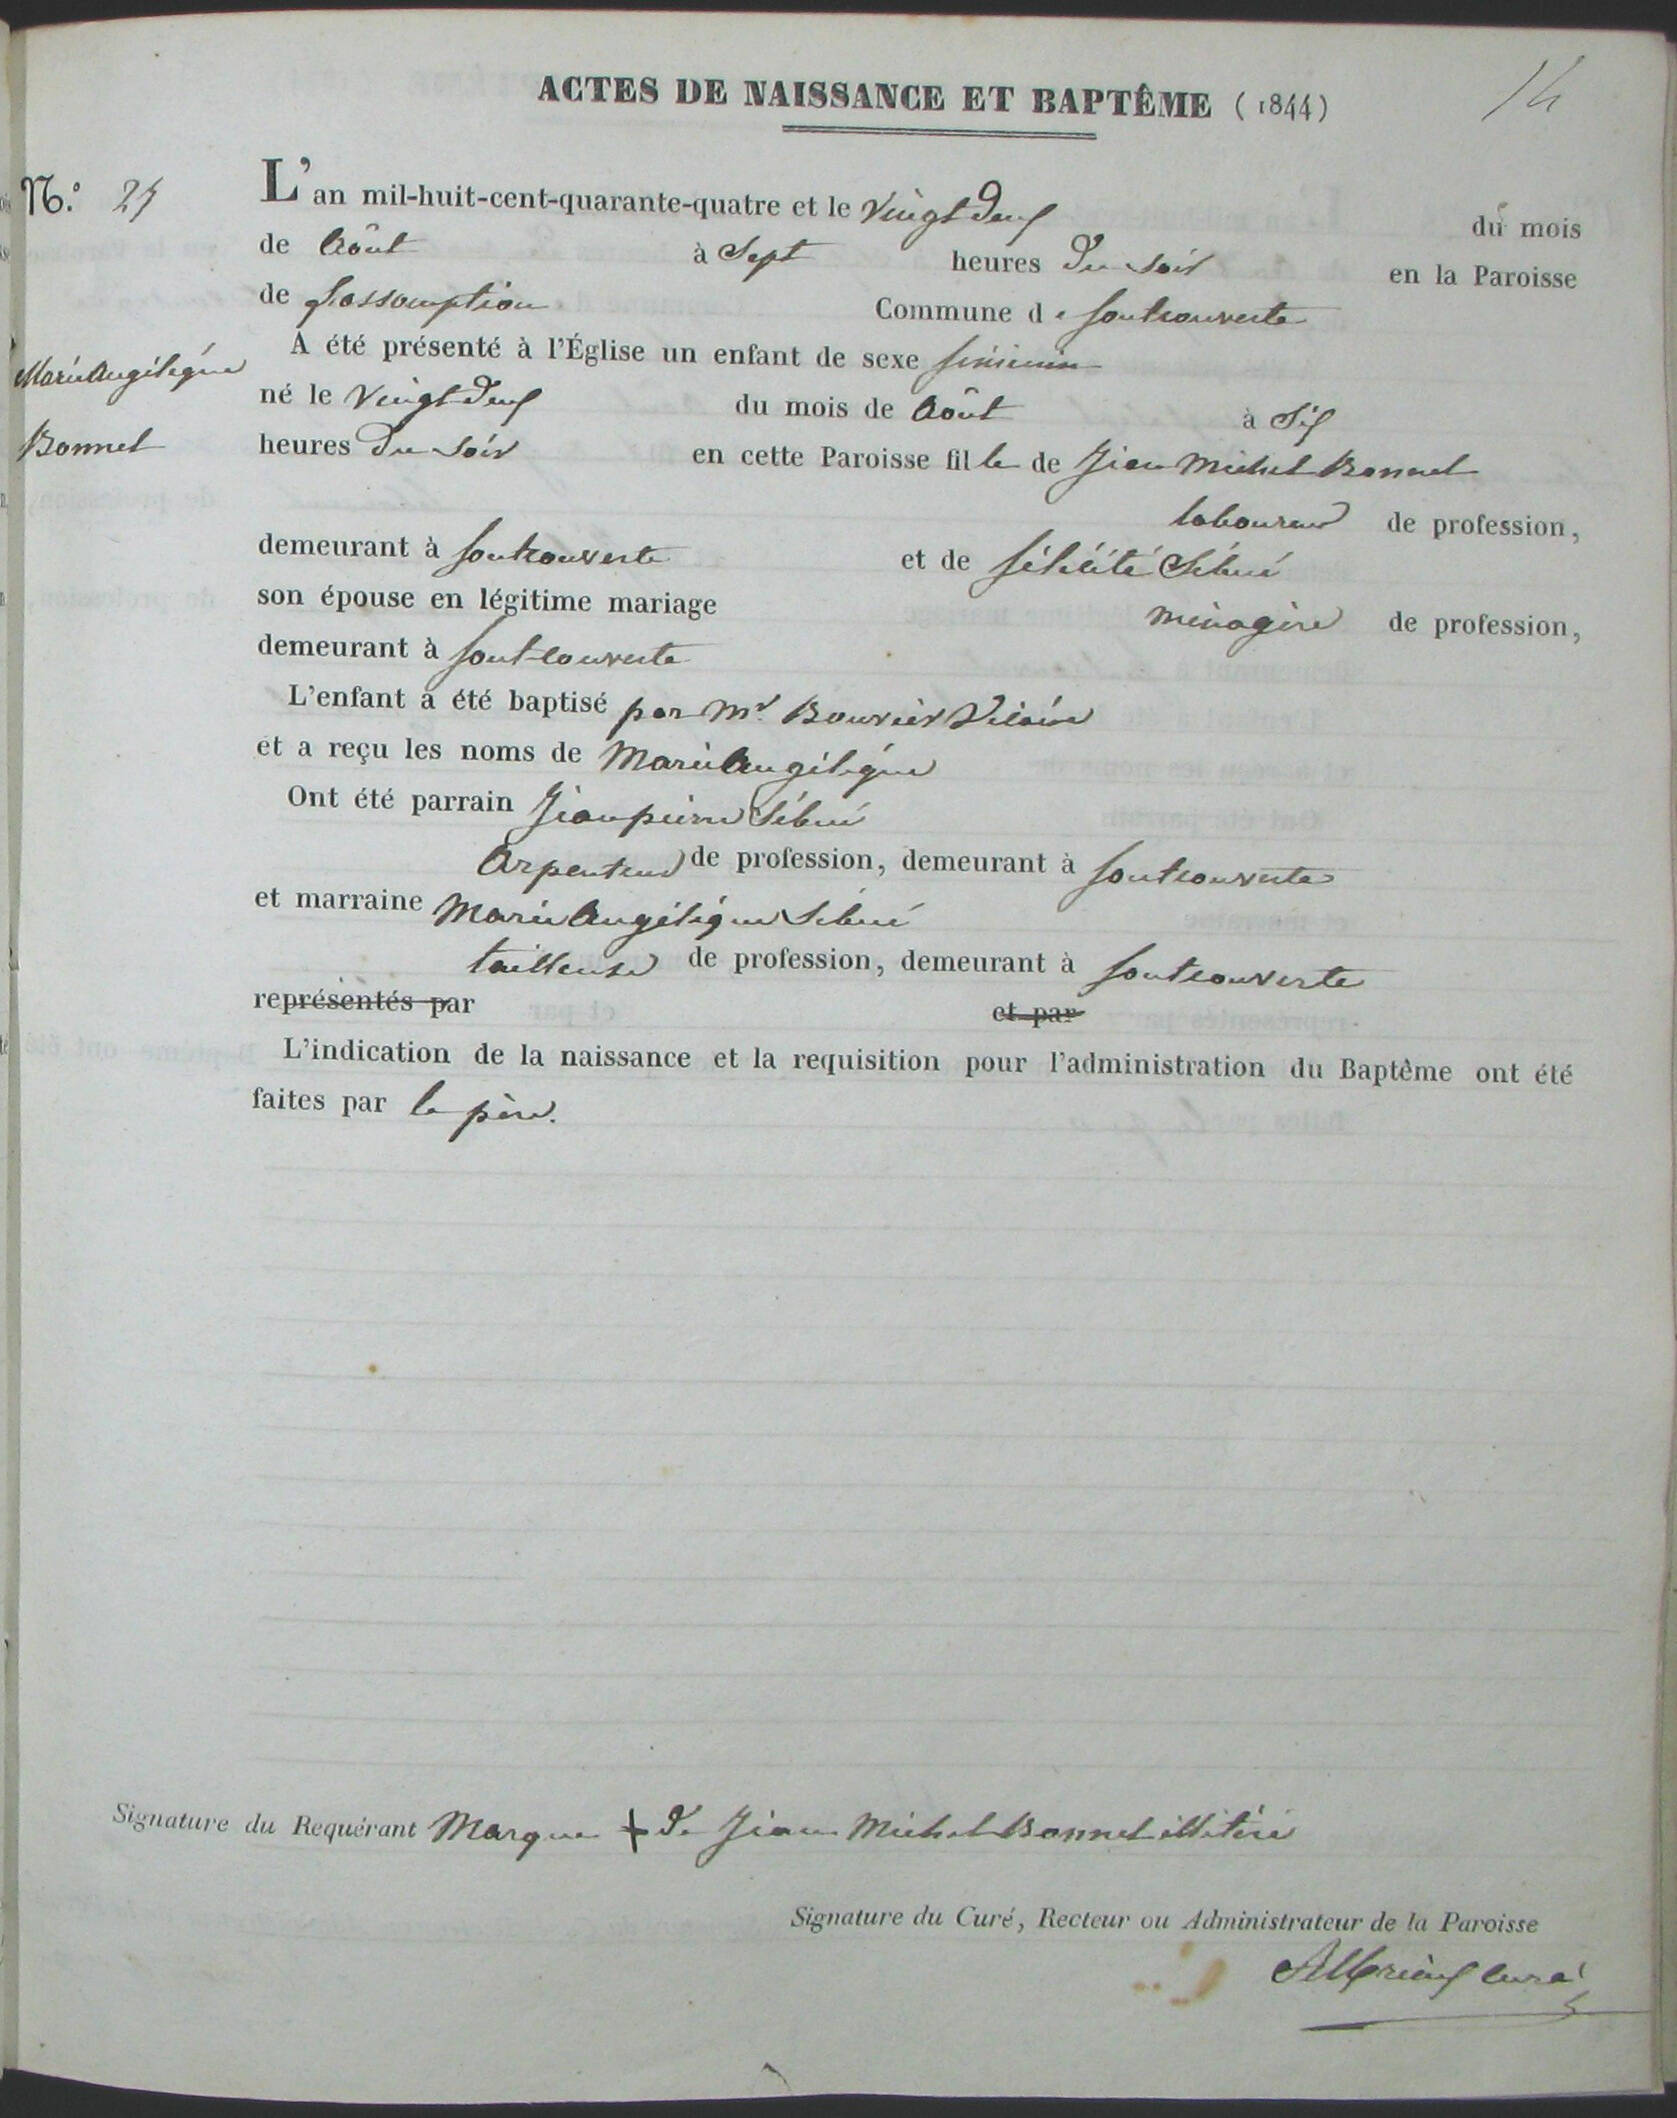 ACTES DE NAISSANCE ET BAPTÊME (1844)
14
N.º 25
L'an mil-huit-cent-quarante-quatre et le vingt deux du mois
de Août à Sept heures du soir en la Paroisse
de L'assomption Commune de fontcouverte
A été présenté à l'Église un enfant de sexe féminin
Marie Angélique
né le vingt deux du mois de Août à Six
Bonnel
heures du soir en cette Paroisse fille de Jean Michel Bonnel
laboureur de profession,
demeurant à fontcouverte et de félicité Sibué
son épouse en légitime mariage ménagère de profession,
demeurant à fontcouverte
L'enfant a été baptisé par Mr. Bouvier Vicaire
et a reçu les noms de Marie Angélique
Ont été parrain Jean pierre Sibué
Arpenteur de profession, demeurant à fontcouverte
et marraine Marie Angélique Sibué
tailleuse de profession, demeurant à fontcouverte
représentés par et par
L'indication de la naissance et la requisition pour l'administration du Baptême ont été
faites par le père.
Signature du Requérant Marque + de Jean Michel Bonnel illitéré
Signature du Curé, Recteur ou Administrateur de la Paroisse
curé